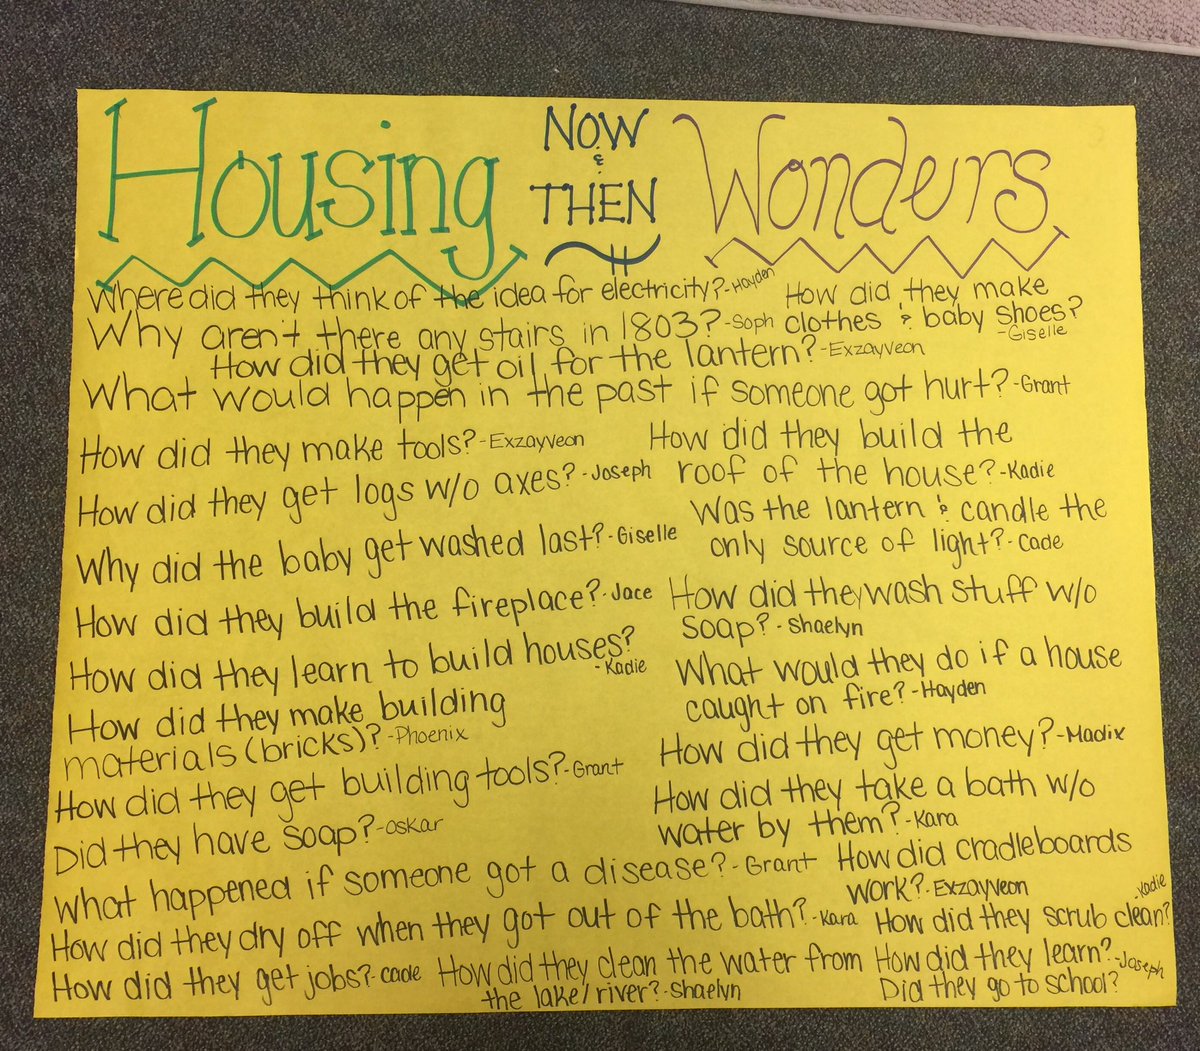 Housing NOW & THEN Wonders
Where did they think of the idea for electricity? - Hayden
How did they make
clothes & baby shoes?
- Giselle
Why aren't there any stairs in 1803? - Soph
How did they get oil for the lantern? - Exzayveon
What would happen in the past if someone got hurt? - Grant
How did they make tools? - Exzayveon
How did they build the
roof of the house? - Kadie
How did they get logs w/o axes? - Joseph
Was the lantern & candle the
only source of light? - Cade
Why did the baby get washed last? - Giselle
How did they build the fireplace? - Jace
How did they wash stuff w/o
soap? - Shaelyn
How did they learn to build houses?
- Kadie
What would they do if a house
caught on fire? - Hayden
How did they make building
materials (bricks)? - Phoenix
How did they get money? - Madix
How did they get building tools? - Grant
How did they take a bath w/o
water by them? - Kara
Did they have soap? - Oskar
How did cradleboards
work? - Exzayveon
What happened if someone got a disease? - Grant
How did they dry off when they got out of the bath? - Kara
How did they scrub clean?
- Kadie
How did they get jobs? - Cade
How did they clean the water from
the lake/river? - Shaelyn
How did they learn? - Joseph
Did they go to school?